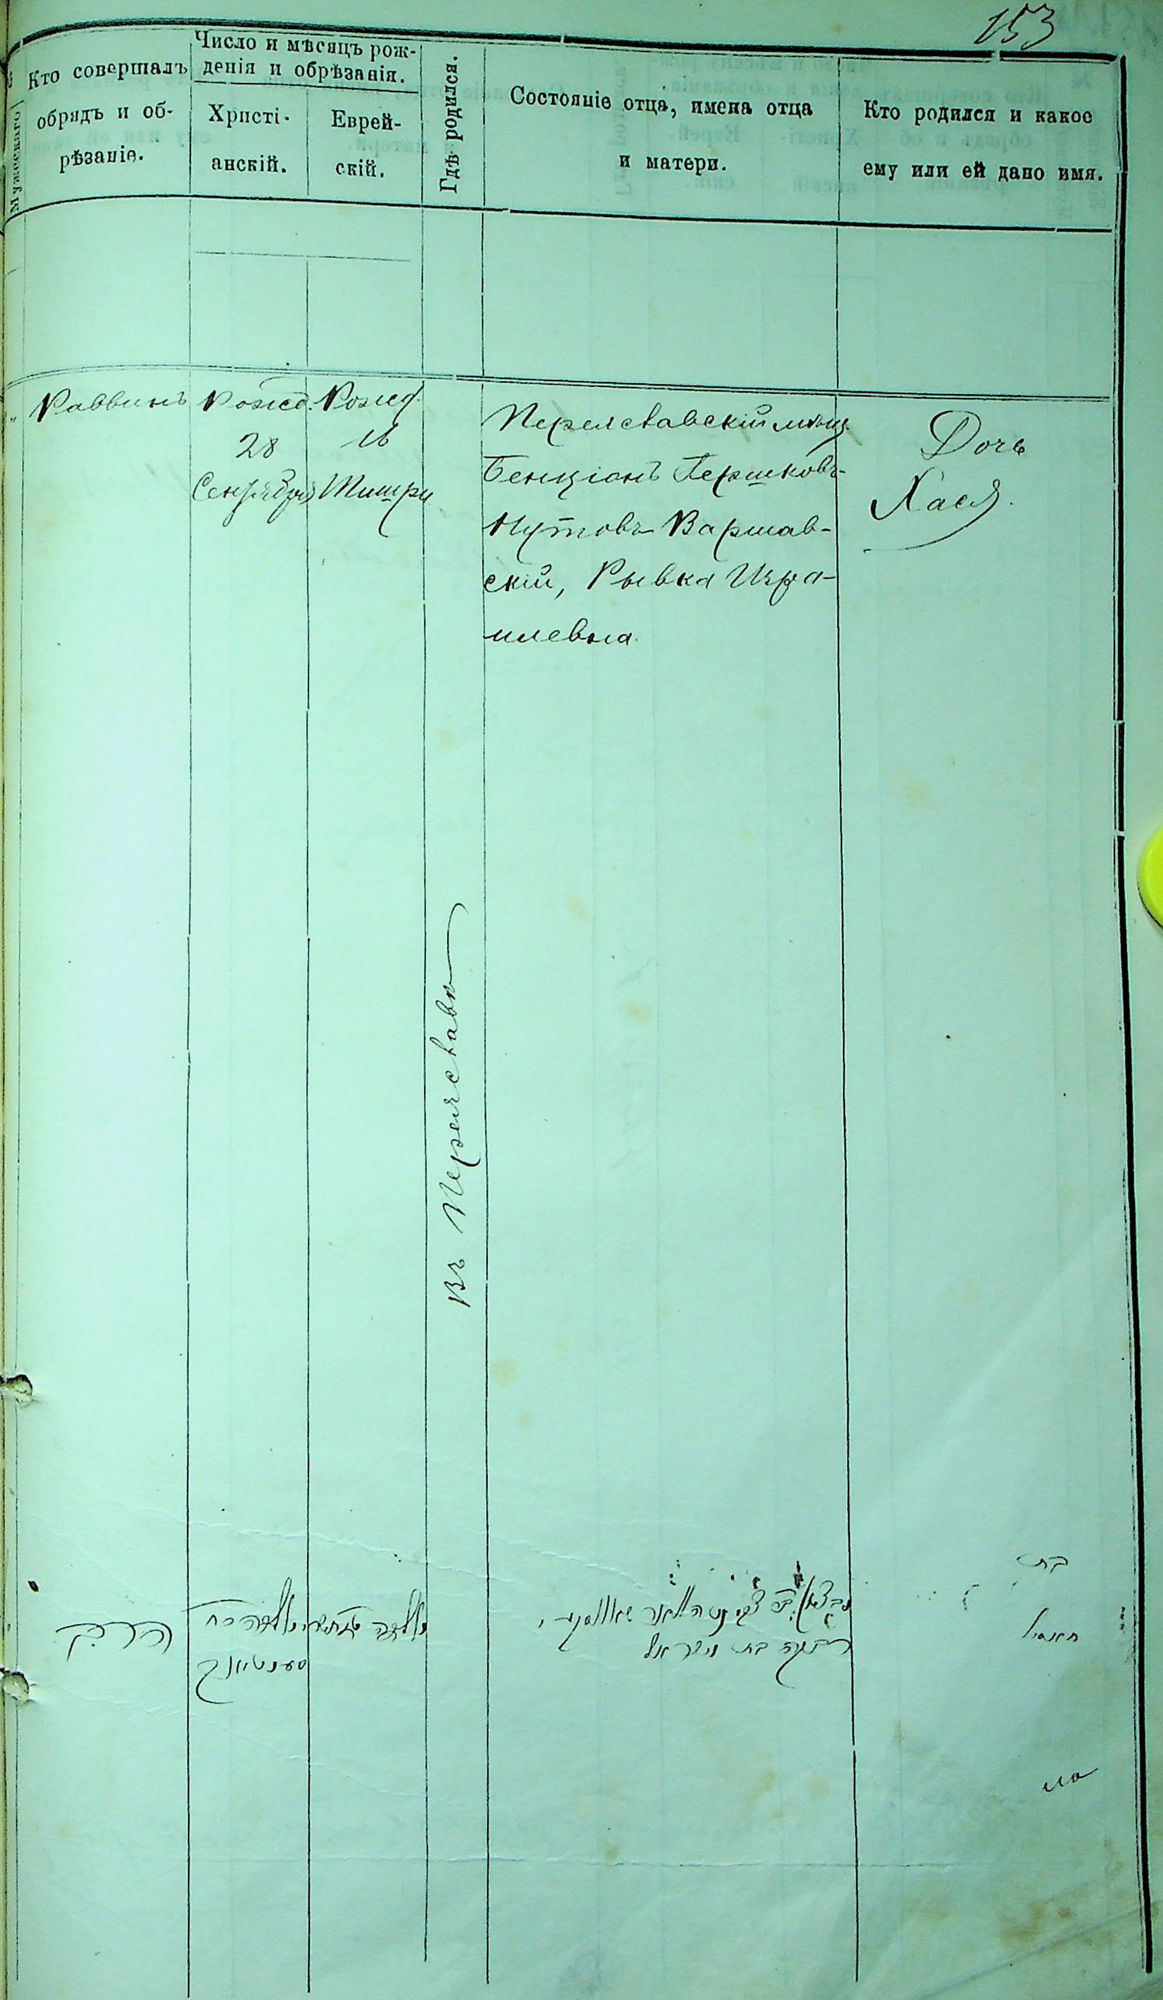 153
Мужескаго
Кто совершалъ
обрядъ и об-
рѣзаніе.
Число и мѣсяцъ рож-
денія и обрѣзанія.
Христі-
анскій.
Еврей-
скій.
Гдѣ родился.
Состояніе отца, имена отца
и матери.
Кто родился и какое
ему или ей дано имя.
Раввинъ
Рожд.
28
Сентября
Рожд.
16
Тишри
Въ Переяславѣ
Переяславскій мѣщ.
Бенціонъ Гершковъ
Нутовъ Варшав-
скій, Рывка Изра-
илевна.
Дочь
Хася.
הרב
נולדה כח
נולדה
רבקה בת ישראל
בת